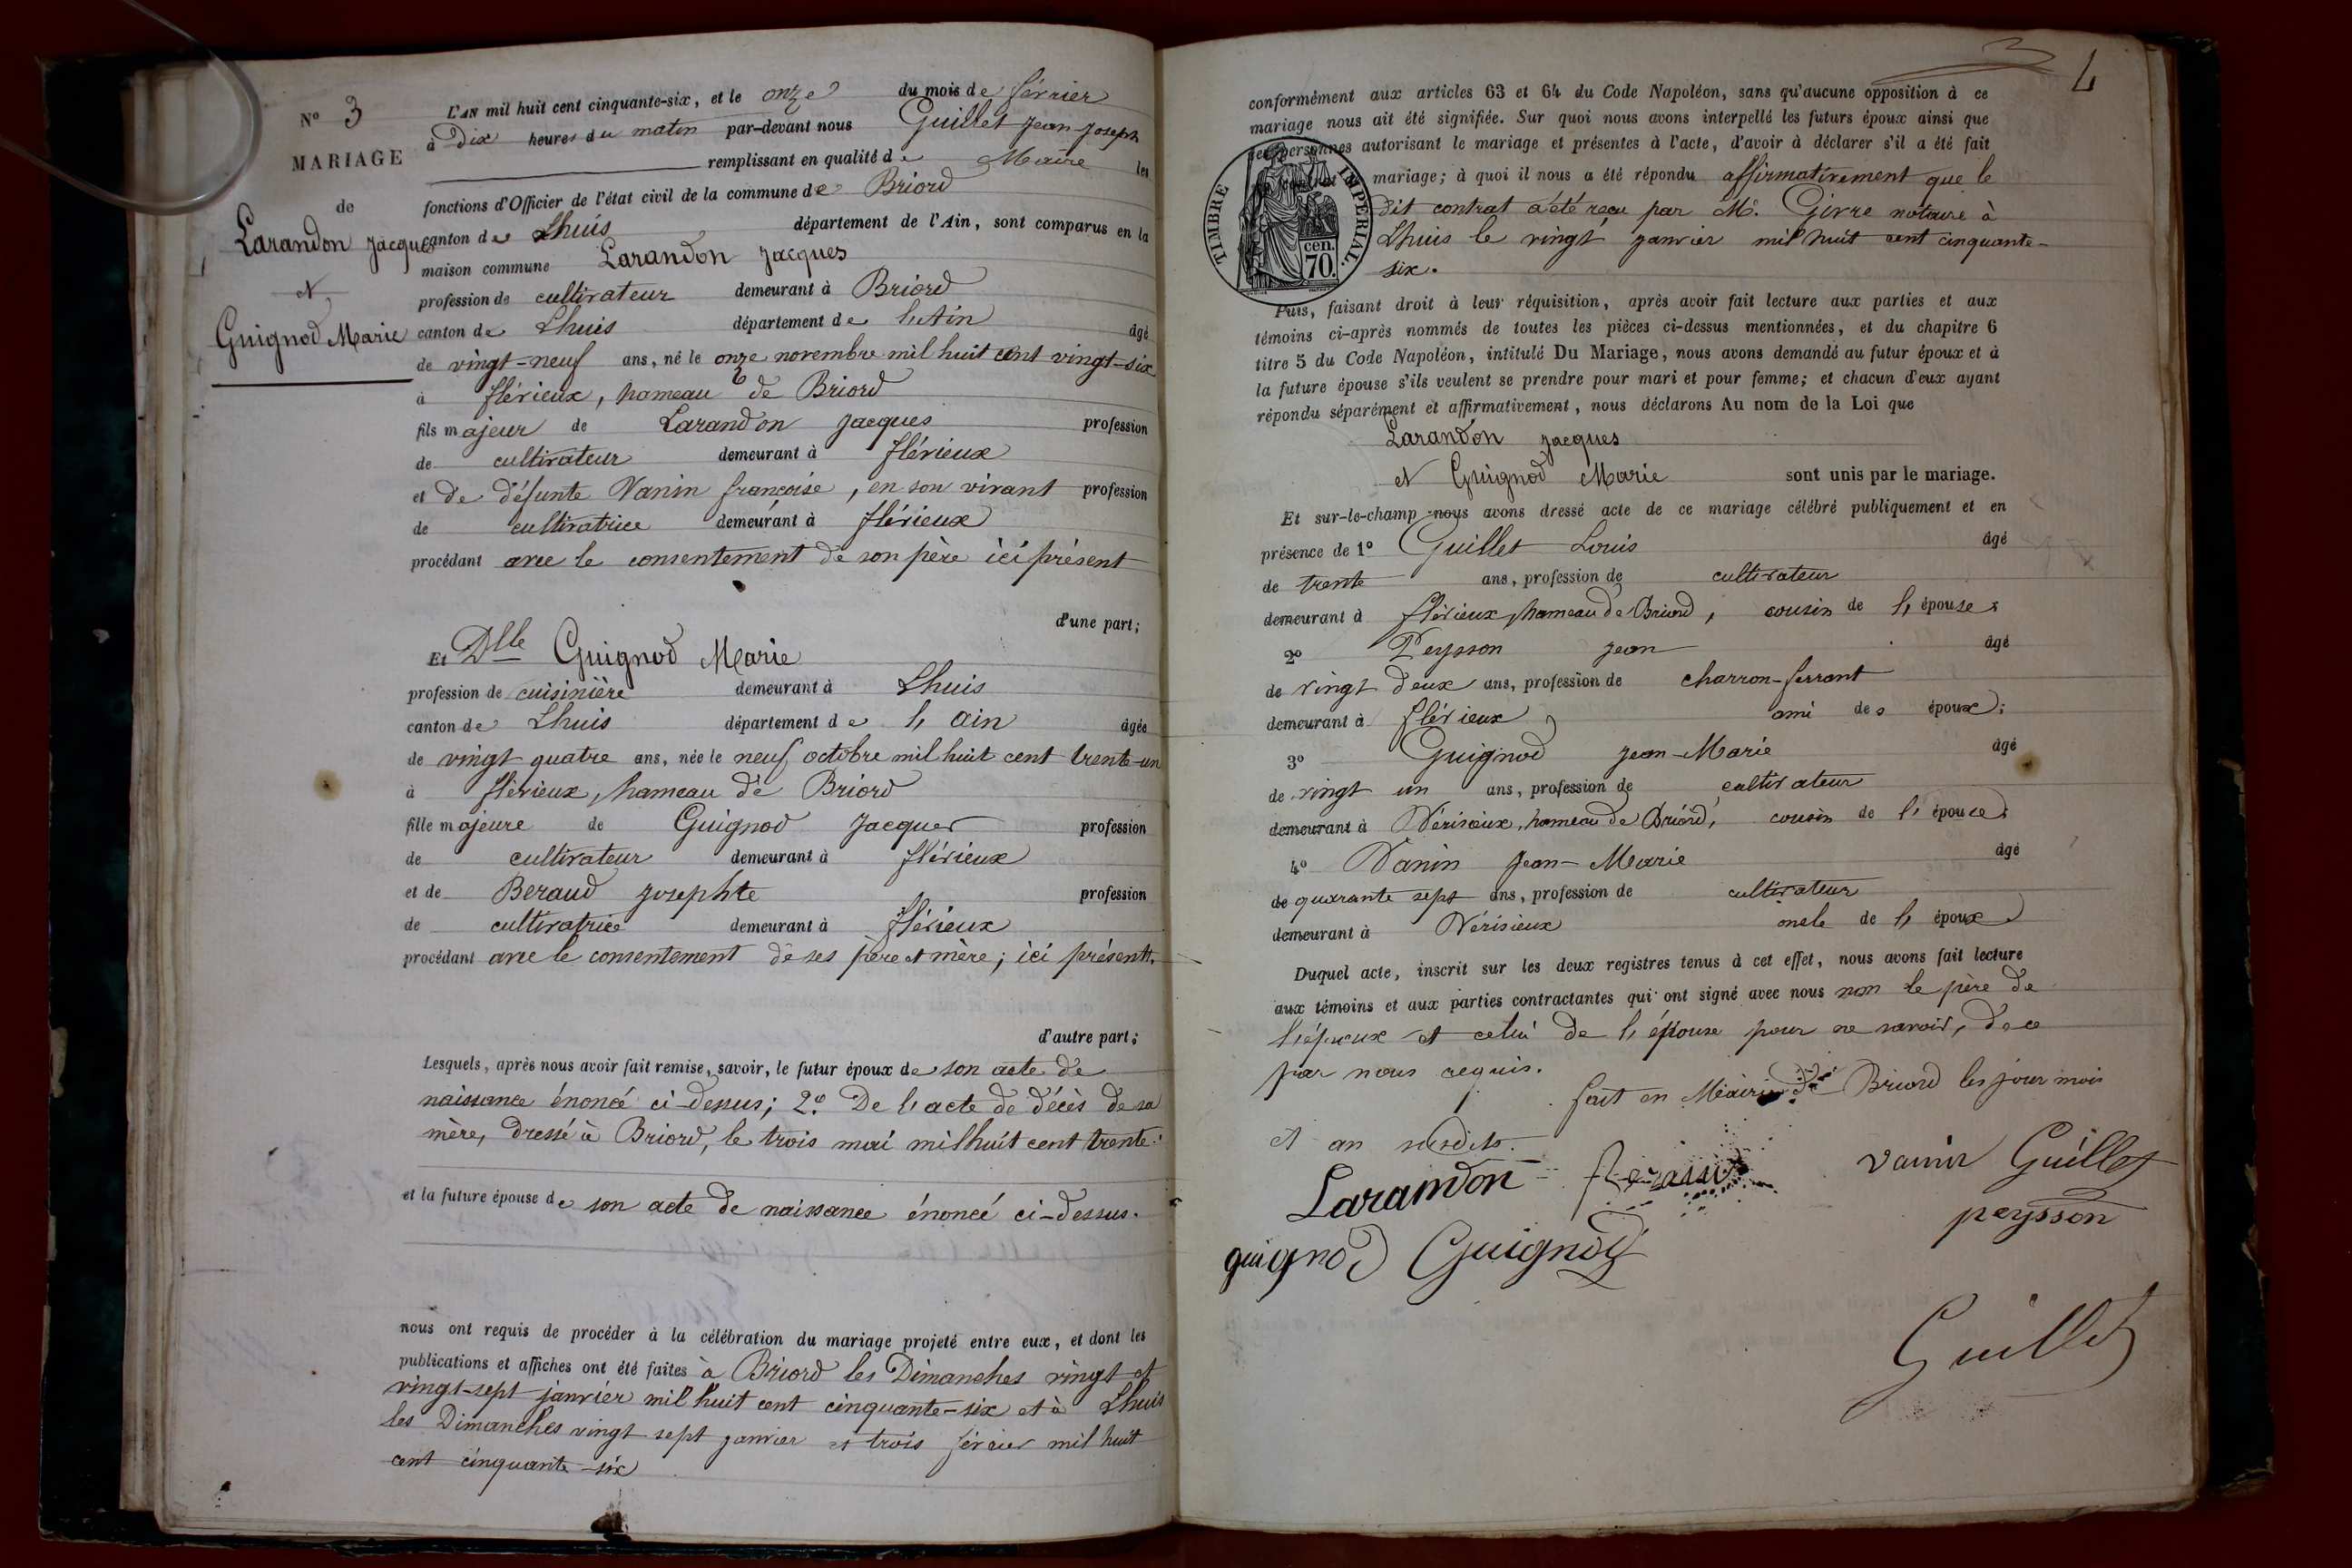 N° 3
MARIAGE
de
Larandon Jacques
et
Guignod Marie
L'AN mil huit cent cinquante-six, et le onze du mois de février
à Dix heures du matin par-devant nous Guillet Jean-Joseph
remplissant en qualité de Maire les
fonctions d'Officier de l'état civil de la commune de Briord
canton de Lhuis département de l'Ain, sont comparus en la
maison commune Larandon Jacques
profession de cultivateur demeurant à Briord
canton de Lhuis département de l'Ain âgé
de vingt-neuf ans, né le onze novembre mil huit cent vingt-six
à flérieux, hameau de Briord
fils majeur de Larandon Jacques profession
de cultivateur demeurant à flérieux
et de défunte Vanin françoise, en son vivant profession
de cultivatrice demeurant à flérieux
procédant avec le consentement de son père ici présent
d'une part;
Et Dlle Guignod Marie
profession de cuisinière demeurant à Lhuis
canton de Lhuis département de l'ain âgée
de vingt quatre ans, née le neuf octobre mil huit cent trente-un
à flérieux, hameau de Briord
fille majeure de Guignod Jacques profession
de cultivateur demeurant à flérieux
et de Beraud Josephte profession
de cultivatrice demeurant à flérieux
procédant avec le consentement de ses père et mère; ici présents.
d'autre part;
Lesquels, après nous avoir fait remise, savoir, le futur époux de son acte de
naissance énoncé ci-dessus; 2° De l'acte de décès de sa
mère, dressé à Briord, le trois mai mil huit cent trente.
et la future épouse de son acte de naissance énoncé ci-dessus.
nous ont requis de procéder à la célébration du mariage projeté entre eux, et dont les
publications et affiches ont été faites à Briord les Dimanches vingt et
vingt-sept janvier mil huit cent cinquante-six et à Lhuis
les Dimanches vingt sept janvier et trois février mil huit
cent cinquante-six
4
conformément aux articles 63 et 64 du Code Napoléon, sans qu'aucune opposition à ce
mariage nous ait été signifiée. Sur quoi nous avons interpellé les futurs époux ainsi que
les personnes autorisant le mariage et présentes à l'acte, d'avoir à déclarer s'il a été fait
mariage; à quoi il nous a été répondu affirmativement que le
dit contrat a été reçu par Me. Givre notaire à
Lhuis le vingt janvier mil huit cent cinquante-
six.
TIMBRE IMPERIAL.
cen.
70.
Puis, faisant droit à leur réquisition, après avoir fait lecture aux parties et aux
témoins ci-après nommés de toutes les pièces ci-dessus mentionnées, et du chapitre 6
titre 5 du Code Napoléon, intitulé Du Mariage, nous avons demandé au futur époux et à
la future épouse s'ils veulent se prendre pour mari et pour femme; et chacun d'eux ayant
répondu séparément et affirmativement, nous déclarons Au nom de la Loi que
Larandon Jacques
et Guignod Marie sont unis par le mariage.
Et sur-le-champ nous avons dressé acte de ce mariage célébré publiquement et en
présence de 1° Guillet Louis âgé
de trente ans, profession de cultivateur
demeurant à flérieux, hameau de Briord, cousin de l'épouse;
2° Peysson Jean âgé
de vingt deux ans, profession de charron-ferrant
demeurant à flérieux, ami des époux;
3° Guignod Jean-Marie âgé
de vingt un ans, profession de cultivateur
demeurant à Vérisieux, hameau de Briord, cousin de l'épouse;
4° Vanin Jean-Marie âgé
de quarante sept ans, profession de cultivateur
demeurant à Vérisieux oncle de l'époux
Duquel acte, inscrit sur les deux registres tenus à cet effet, nous avons fait lecture
aux témoins et aux parties contractantes qui ont signé avec nous non le père de
l'époux et celui de l'épouse pour ne savoir, de ce
par nous requis.
fait en Mairie de Briord les jour mois
et an susdits.
Larandon vanin Guillet
peysson
guignod Guignod
Guillet